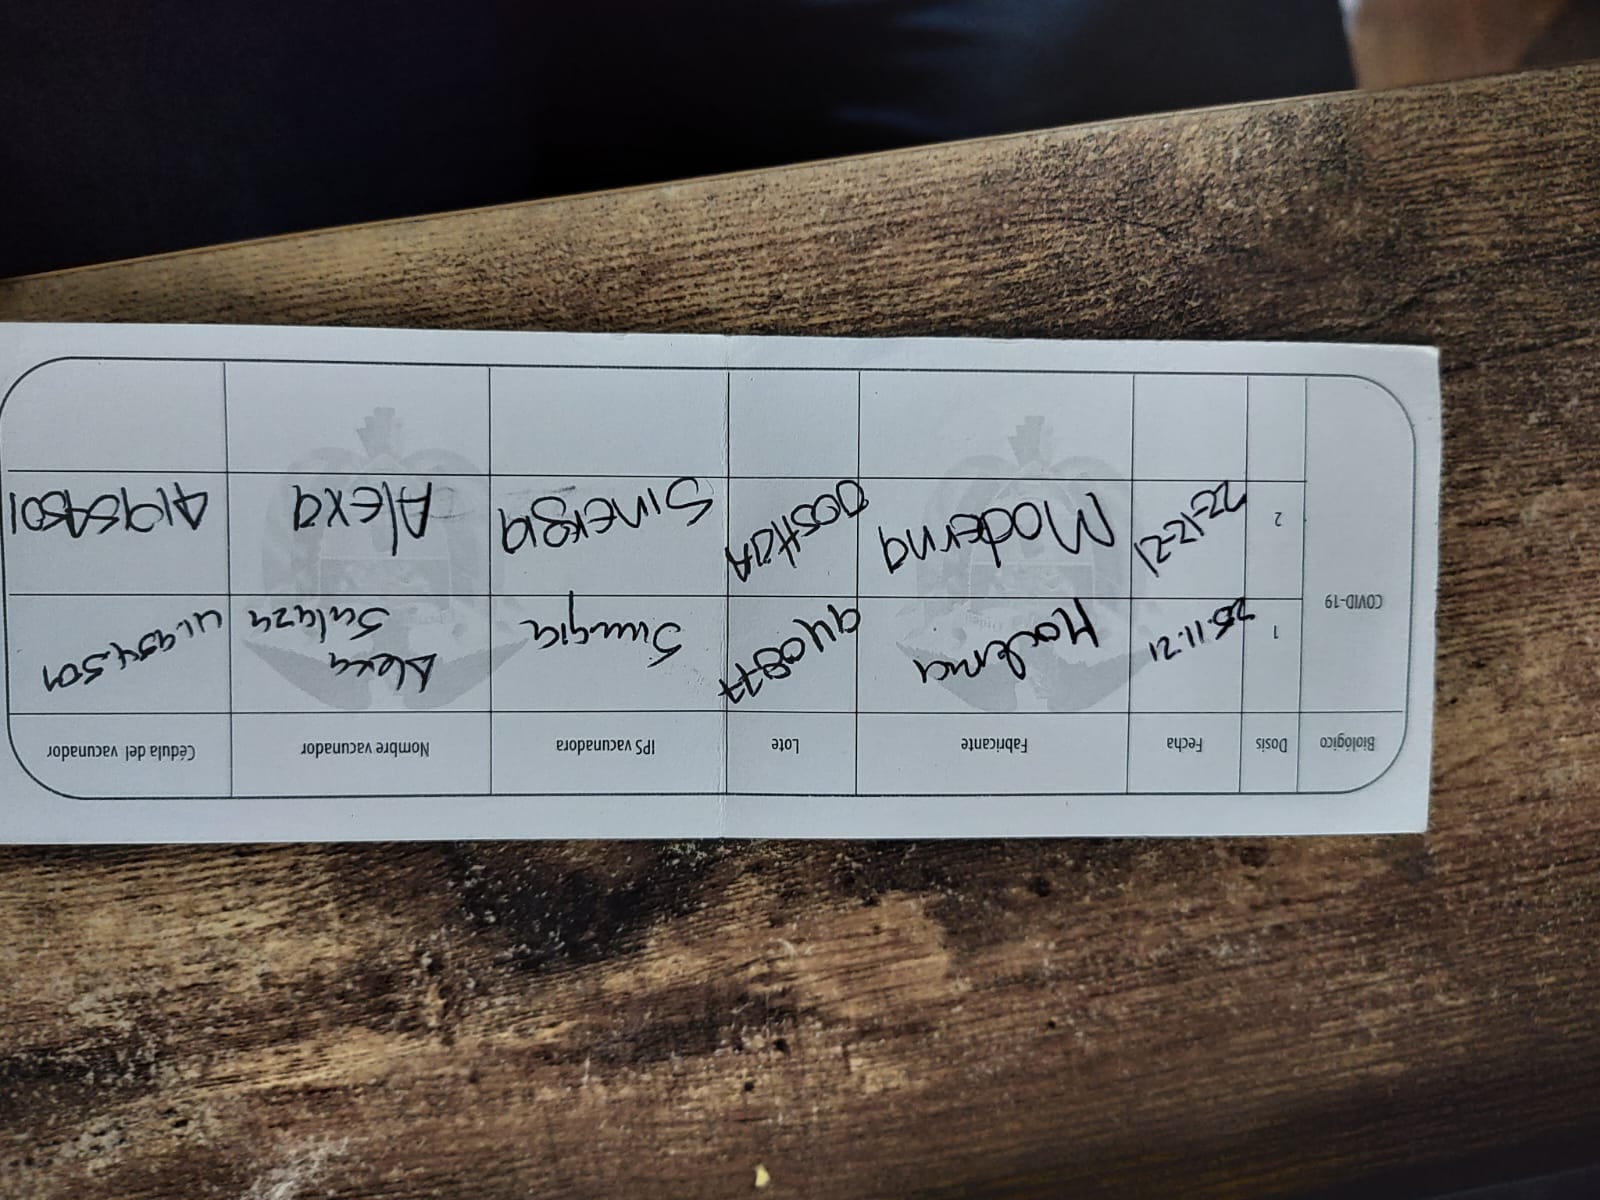 Biológico Dosis Fecha Fabricante Lote IPS vacunadora Nombre vacunador Cédula del vacunador
COVID-19
1 25.11.21 Moderna 940877 Sinergia Alexa Salaza 41.954.501
2 22-12-21 Moderna Sinergia Alexa 41954501